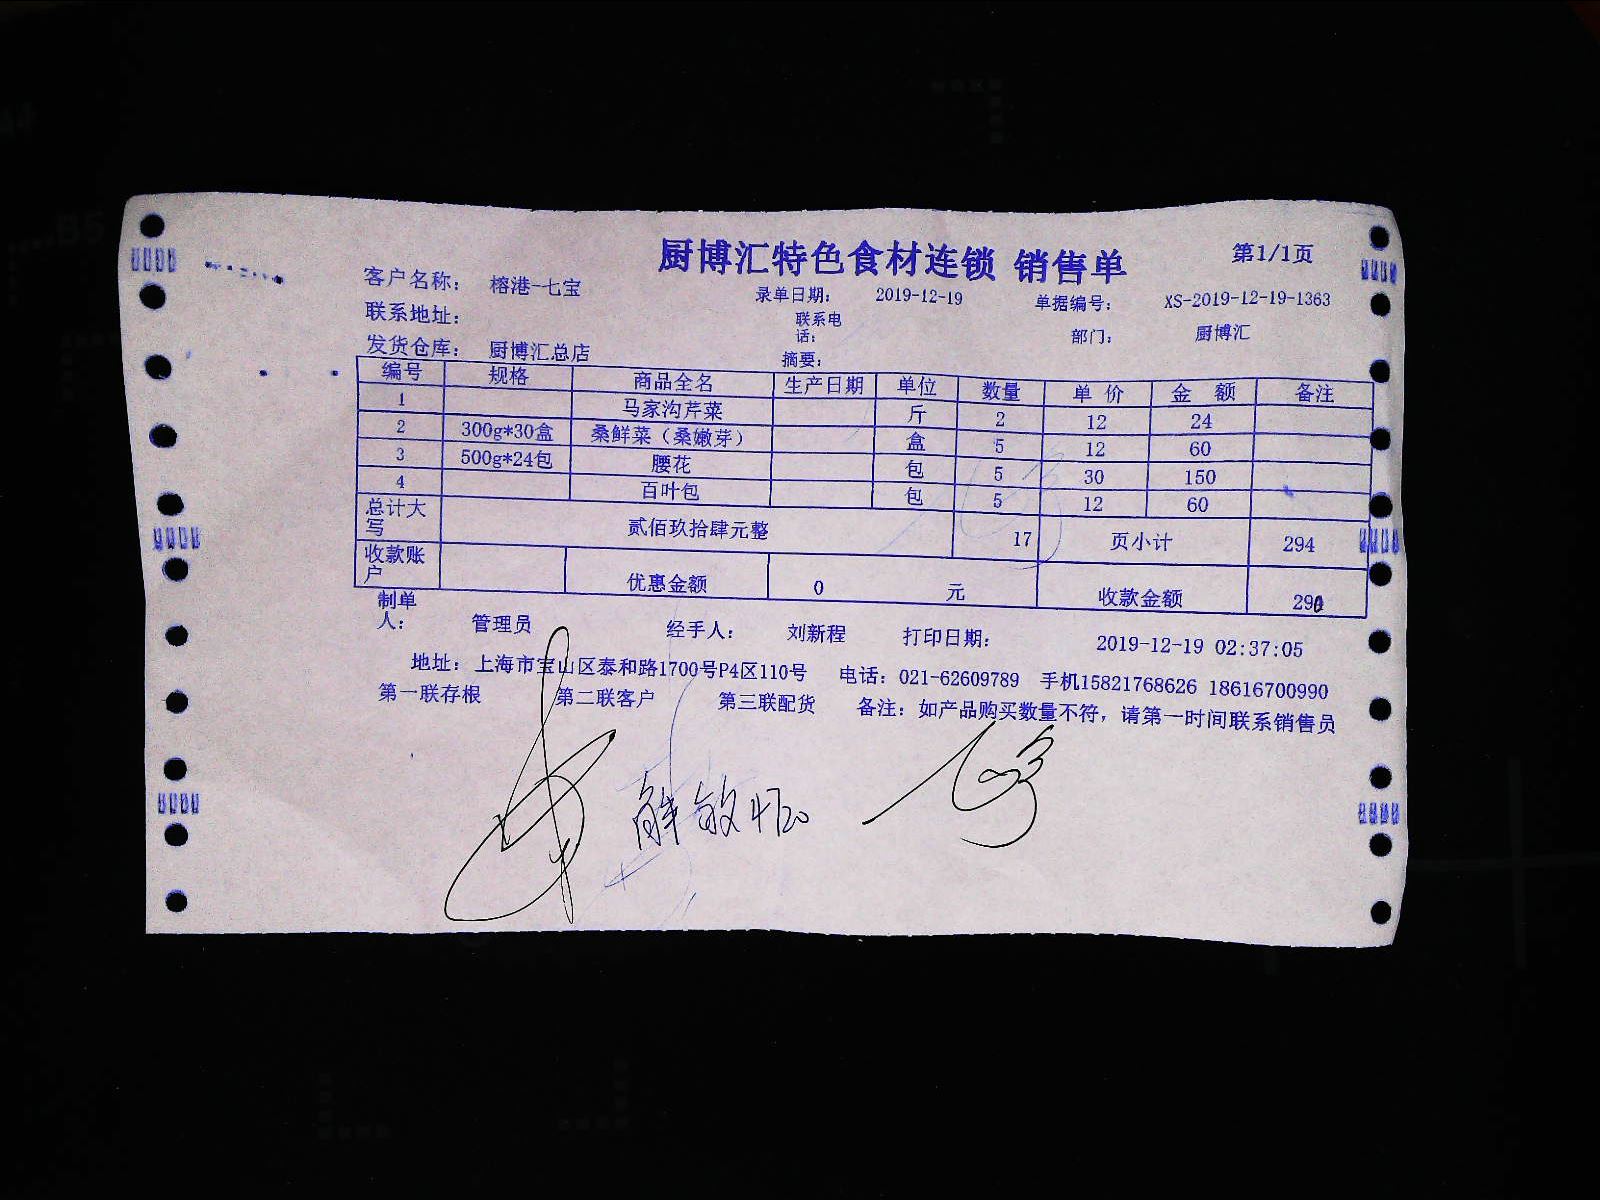 厨博汇特色食材连锁 销售单
第1/1页
客户名称： 榕港-七宝 录单日期： 2019-12-19 单据编号： XS-2019-12-19-1363
联系地址： 联系电话： 部门： 厨博汇
发货仓库： 厨博汇总店 摘要：
编号 规格 商品全名 生产日期 单位 数量 单 价 金 额 备注
1 马家沟芹菜 斤 2 12 24
2 300g*30盒 桑鲜菜（桑嫩芽） 盒 5 12 60
3 500g*24包 腰花 包 5 30 150
4 百叶包 包 5 12 60
总计大写 贰佰玖拾肆元整 17 页小计 294
收款账户 优惠金额 0 元 收款金额 290
制单人： 管理员 经手人： 刘新程 打印日期： 2019-12-19 02:37:05
地址：上海市宝山区泰和路1700号P4区110号 电话：021-62609789 手机15821768626 18616700990
第一联存根 第二联客户 第三联配货 备注：如产品购买数量不符，请第一时间联系销售员